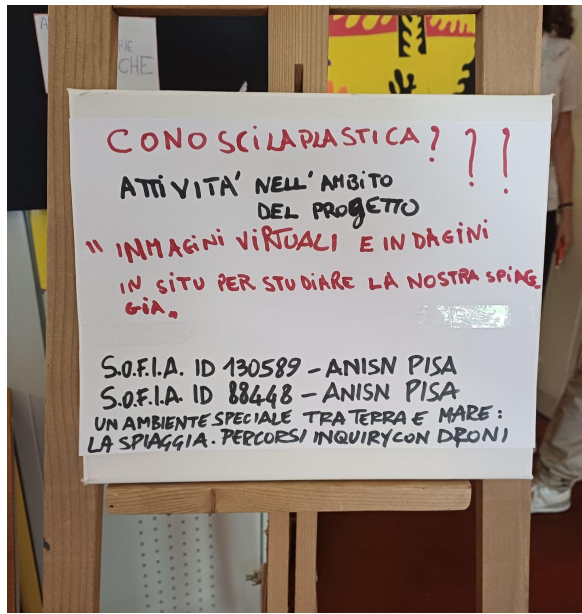 RIE
CHE
CONOSCI LA PLASTICA ? ? ?
ATTIVITA' NELL'AMBITO
DEL PROGETTO
" IMMAGINI VIRTUALI E INDAGINI
IN SITU PER STUDIARE LA NOSTRA SPIAG_
GIA„
S.O.F.I.A. ID 130589 - ANISN PISA
S.O.F.I.A. ID 88448 - ANISN PISA
UN AMBIENTE SPECIALE TRA TERRA E MARE:
LA SPIAGGIA. PERCORSI INQUIRY CON DRONI